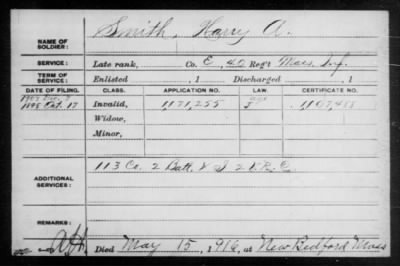 NAME OF SOLDIER: Smith, Harry A.
SERVICE: Late rank, Co. E, 42 Reg't Mass. Inf.
TERM OF SERVICE: Enlisted , 1 Discharged , 1
DATE OF FILING. CLASS. APPLICATION NO. LAW. CERTIFICATE NO.
1898 Oct. 17 Invalid, 1,171,255
Widow,
Minor,
ADDITIONAL SERVICES: 113 Co. 2 Batt. & I 2 V.R.C.
REMARKS:
Died May 15, 1916, at New Bedford Mass